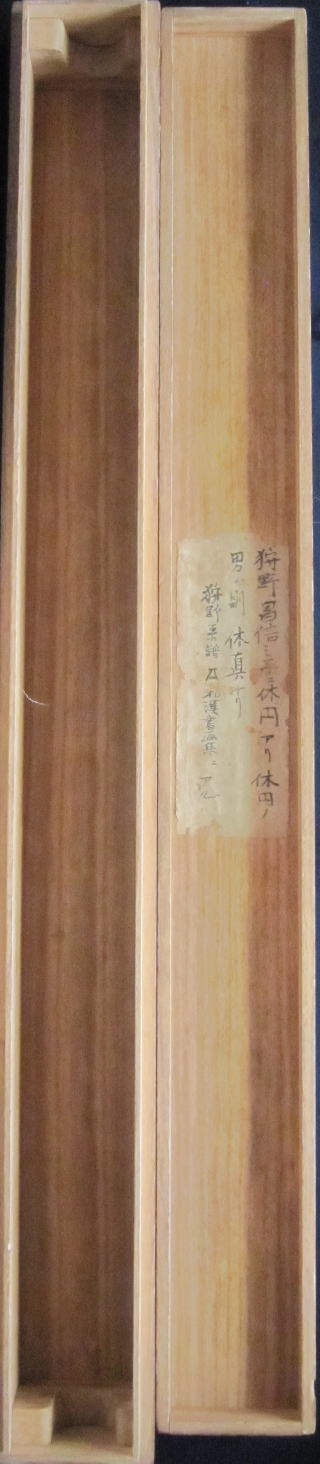 狩野昌信ニ休円アリ休円ノ
男ハ則休真ナリ
狩野系譜及和漢書画集ニ